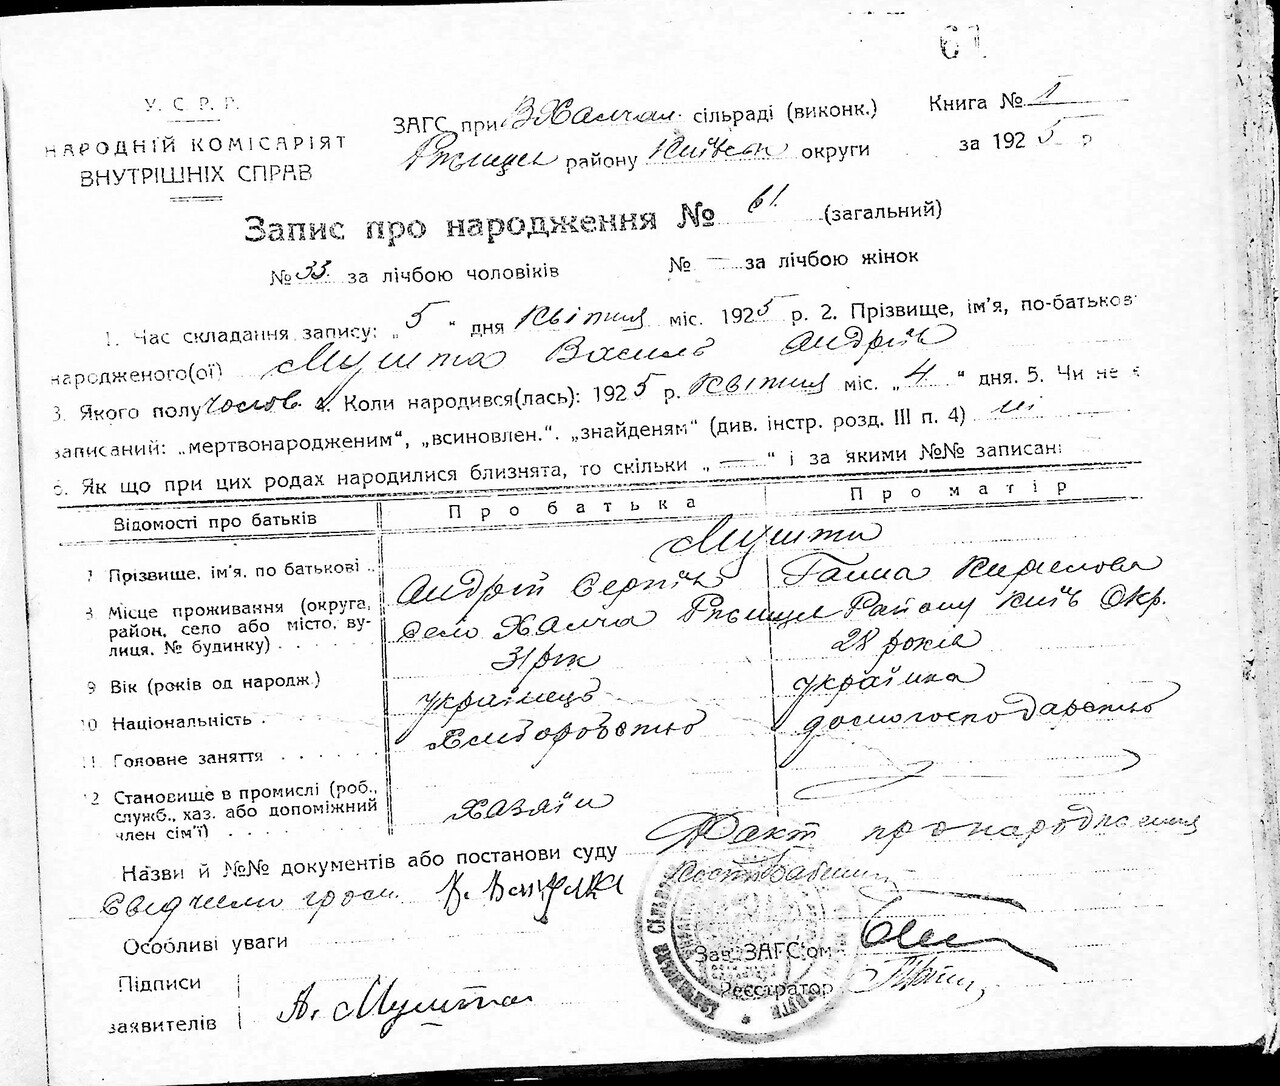 61
У. С. Р. Р.
НАРОДНІЙ КОМІСАРІЯТ
ВНУТРІШНІХ СПРАВ
ЗАГС при В Халчан. сільраді (виконк.)
Ржищев району Київськ округи
Книга № 1
за 1925 р
Запис про народження № 61 (загальний)
№ 33. за лічбою чоловіків № — за лічбою жінок
1. Час складання запису: „5“ дня Квітня міс. 1925 р. 2. Прізвище, ім'я, по-батьков
народженого(ої) Мушта Василь Андрїїв
3. Якого полу чолов. 4. Коли народився(лась): 1925 р. Квітня міс. „4“ дня. 5. Чи не є
записаний: „мертвонародженим“, „всиновлен.“. „знайденям“ (див. інстр. розд. III п. 4) ні
6. Як що при цих родах народилися близнята, то скільки „—“ і за якими №№ записані
Відомості про батьків Про батька Про матір
7 Прізвище, ім'я, по батькові ..
Мушти
Андрій Сергіїв Ганна Кирилова
8 Місце проживання (округа,
район, село або місто, ву-
лиця, № будинку)
Село Халча Ржищев Району Київ Окр.
9 Вік (років од народж.) 31 рік 28 років
10 Національність українець українка
11 Головне заняття Хліборобство домогосподарство
12 Становище в промислі (роб.,
служб., хаз. або допоміжний
член сім'ї)
хазяїн
Назви й №№ документів або постанови суду Факт про народження
Свідчили гром.
Особливі уваги
Підписи
заявителів А. Мушта
Зав. ЗАГС'ом
Реєстратор